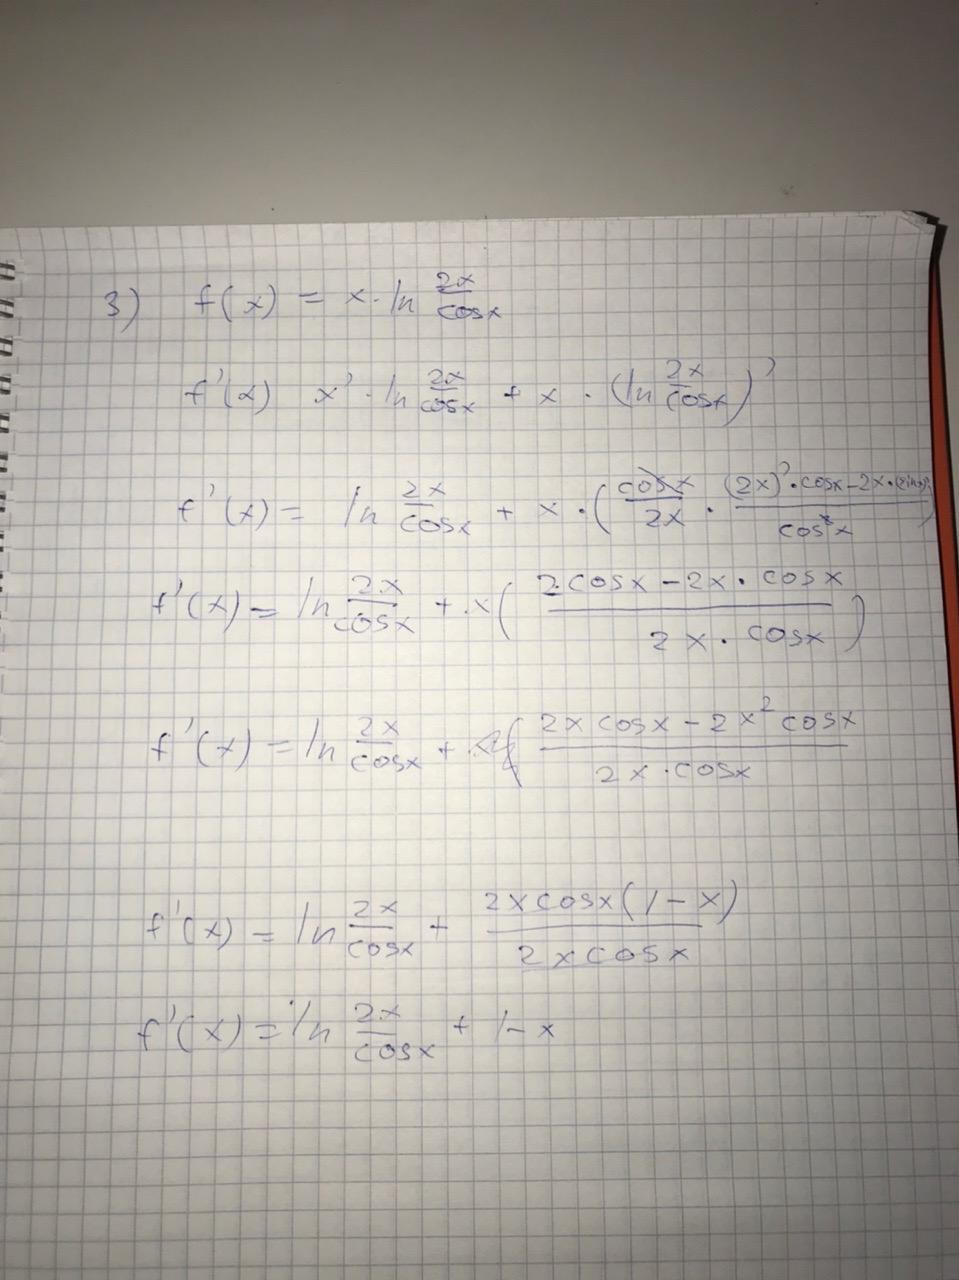 3) f(x) = x · ln 2x/cosx
f'(x) x' · ln 2x/cosx + x · (ln 2x/cosx)'
f'(x) = ln 2x/cosx + x · (cosx/2x · ((2x)' · cosx - 2x · (sinx))/cos²x)
f'(x) = ln 2x/cosx + x ((2 · cosx - 2x · cosx)/(2x · cosx))
f'(x) = ln 2x/cosx + (2x cosx - 2x² cosx)/(2x · cosx)
f'(x) = ln 2x/cosx + 2xcosx(1-x)/2xcosx
f'(x) = ln 2x/cosx + 1-x